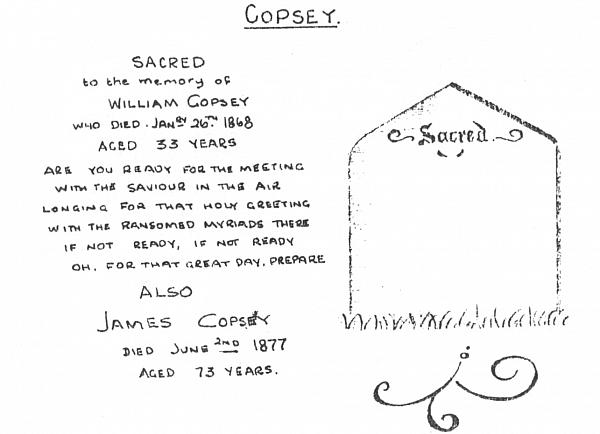 COPSEY.
SACRED
to the memory of
WILLIAM COPSEY
WHO DIED. JANRY 26TH 1868
AGED 33 YEARS
ARE YOU READY FOR THE MEETING
WITH THE SAVIOUR IN THE AIR
LONGING FOR THAT HOLY GREETING
WITH THE RANSOMED MYRIADS THERE
IF NOT READY, IF NOT READY
OH. FOR THAT GREAT DAY. PREPARE
ALSO
JAMES COPSEY
DIED JUNE 2ND 1877
AGED 73 YEARS.
Sacred